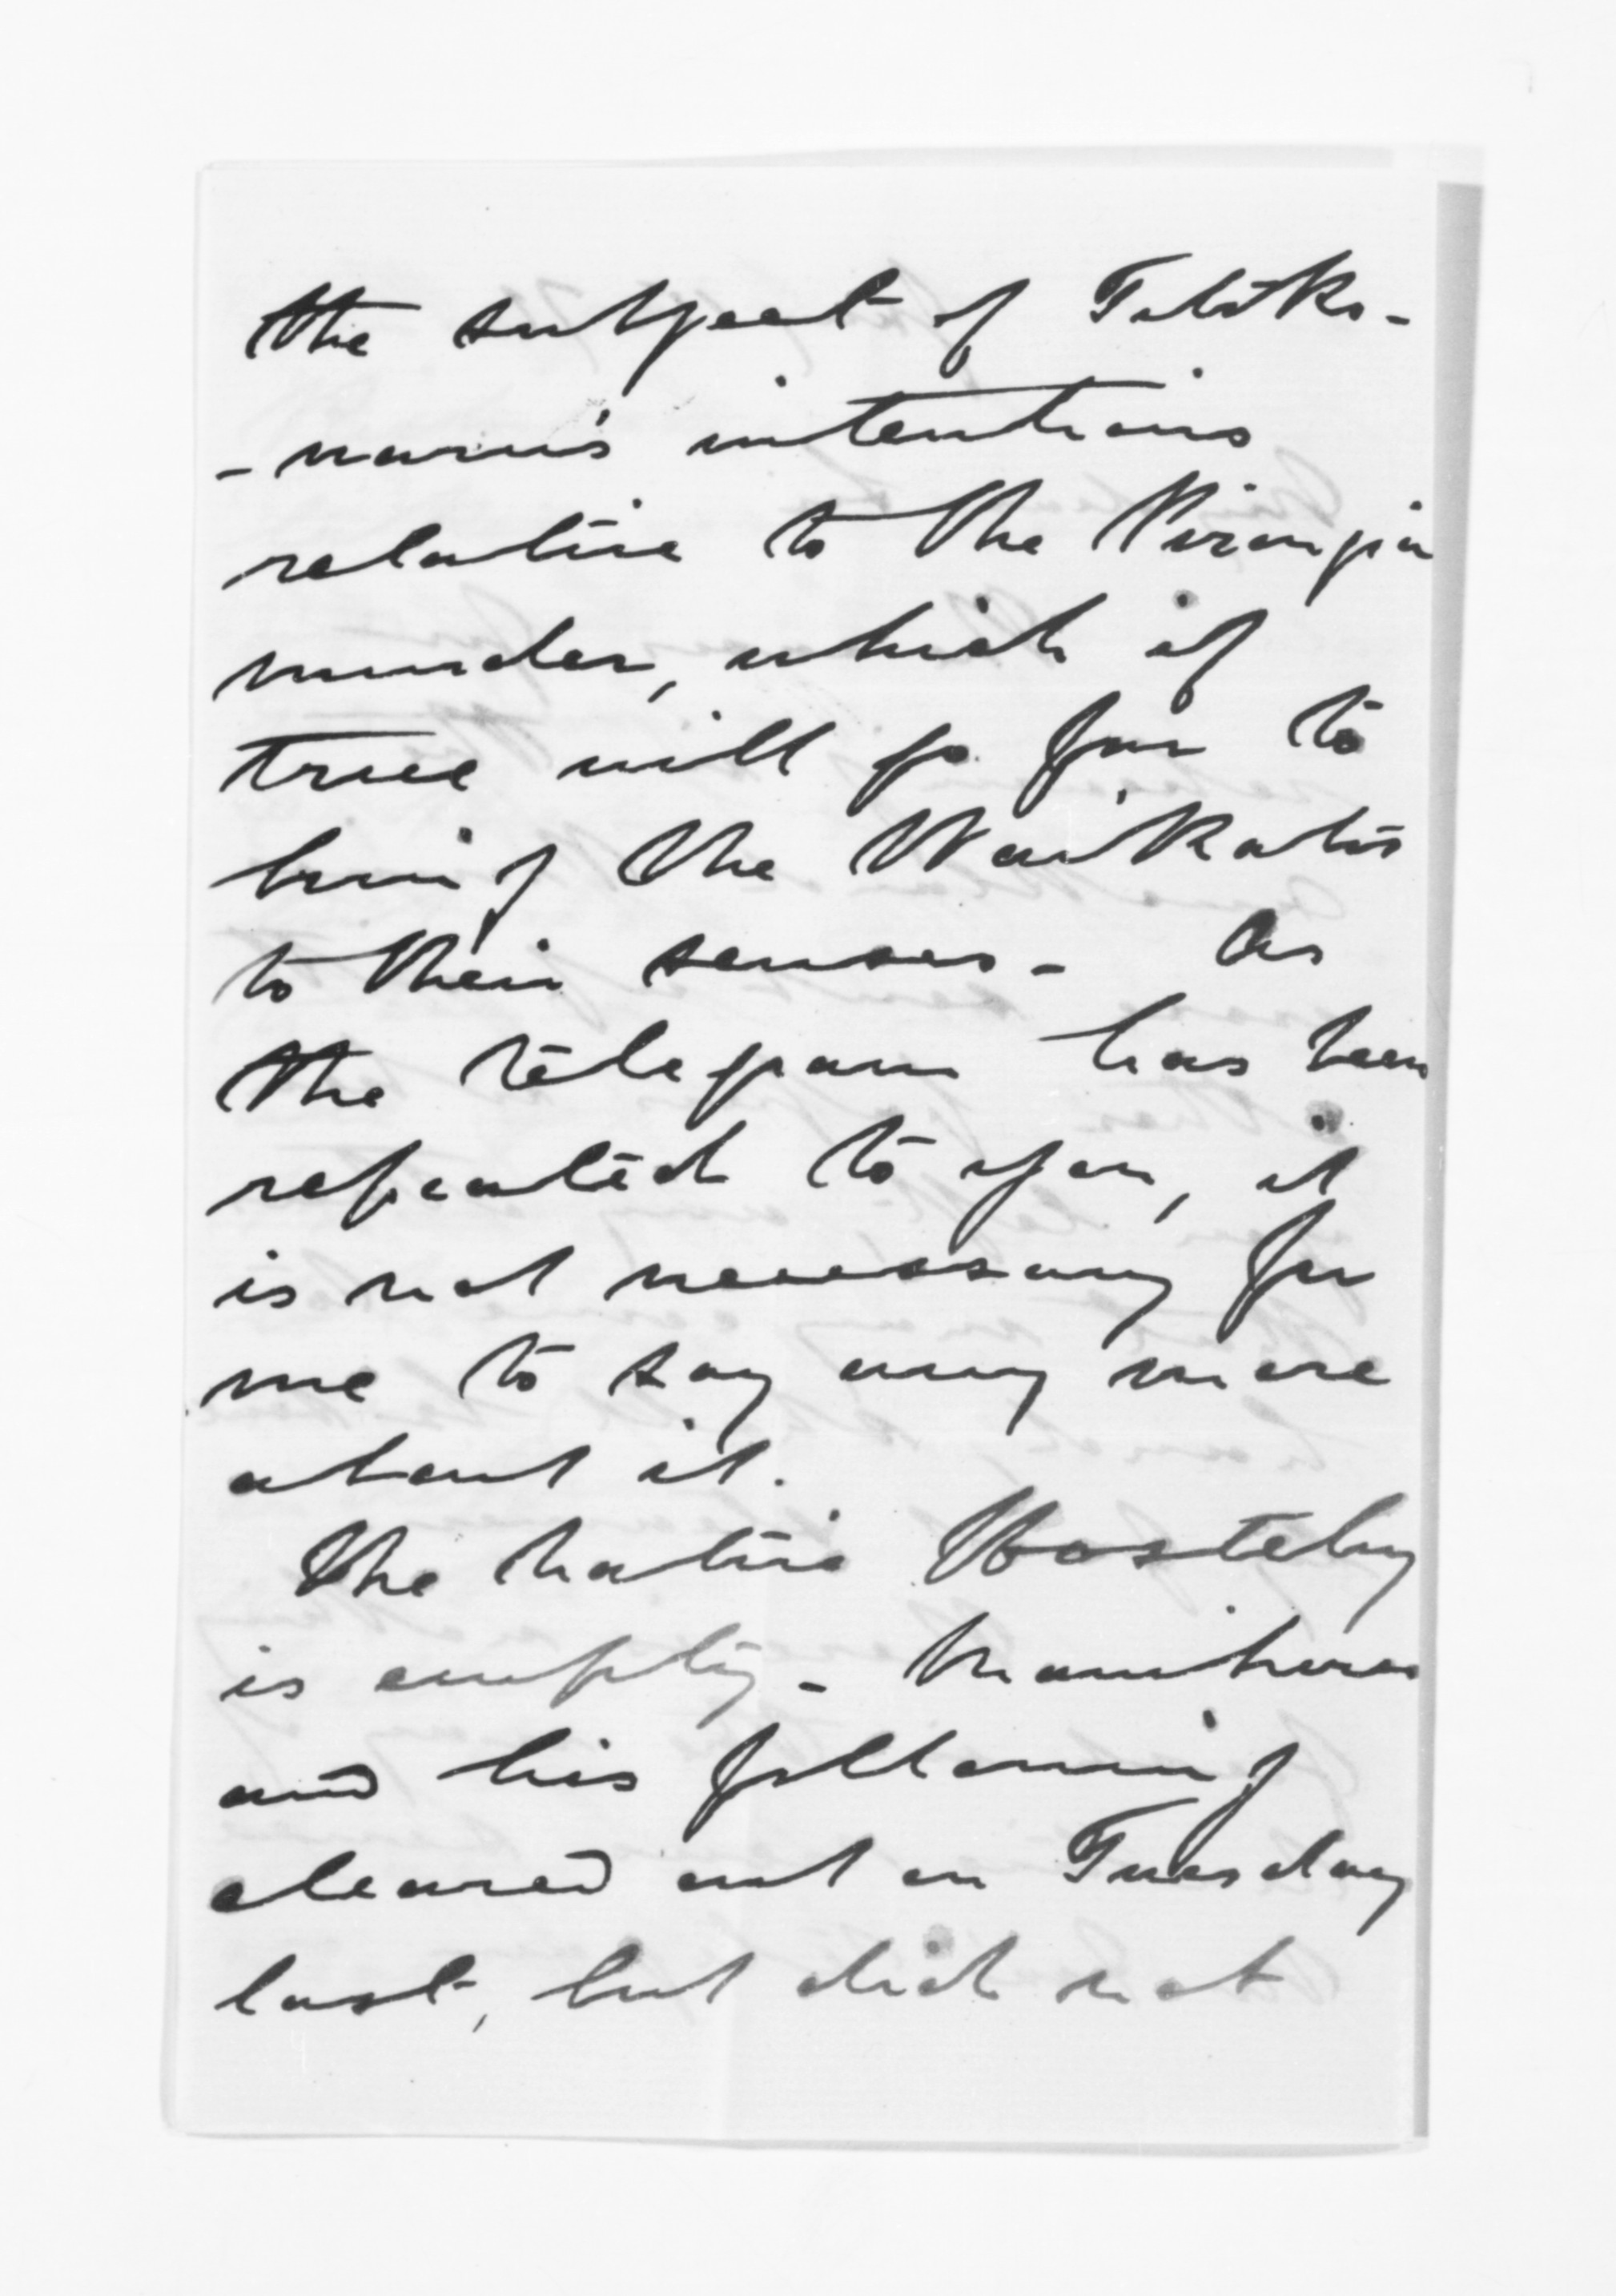 the subject of Titoko-
-waru's intentions
relative to the Pirongia
murder, which if
true will go far to
bring the Waikatos
to their senses - As
the telegram has been
repeated to you, it
is not necessary for
me to say any more
about it.
The Native Hostelry
is empty - Manihera
and his following
cleared out on Tuesday
last, but did not